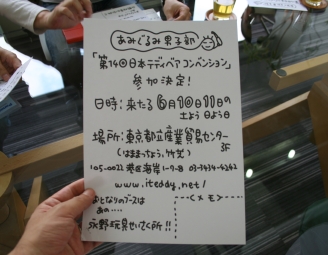 あみぐるみ男子部
「第14回日本テディベアコンベンション」
参加決定!
日時:来たる6月10日11日の
土よう日よう
場所:東京都立産業貿易センター
(はままつちょう、竹芝) 3F
105-0022 港区海岸1-7-8 03-3434-4242
www.jteddy.net/
おとなりのブースは
あの‥‥
永野玩具せいさく所!!
<メモ>